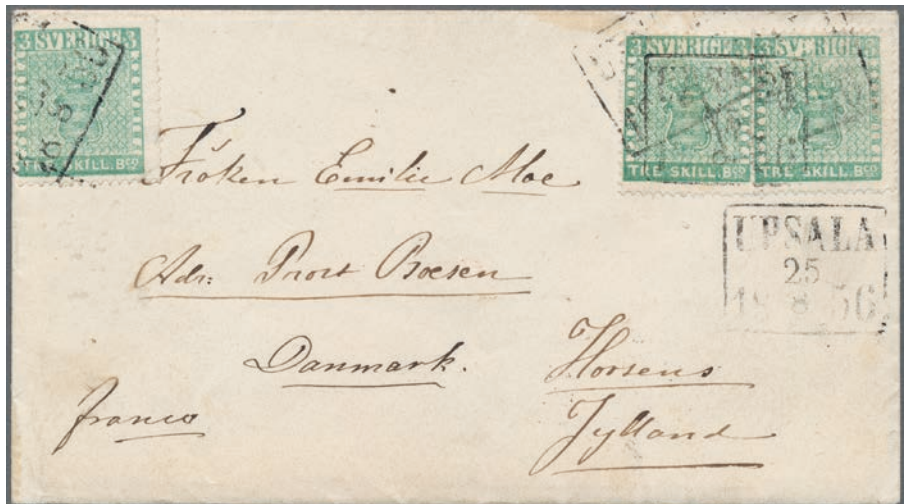 3 SVERIGE 3
TRE SKILL. Bco
3 SVERIGE 3
TRE SKILL. Bco
3 SVERIGE 3
TRE SKILL. Bco
UPSALA
25
18 8 56
Fröken Emilie Moe
Adr: Prost Boesen
Danmark.
Horsens
Jylland
franco